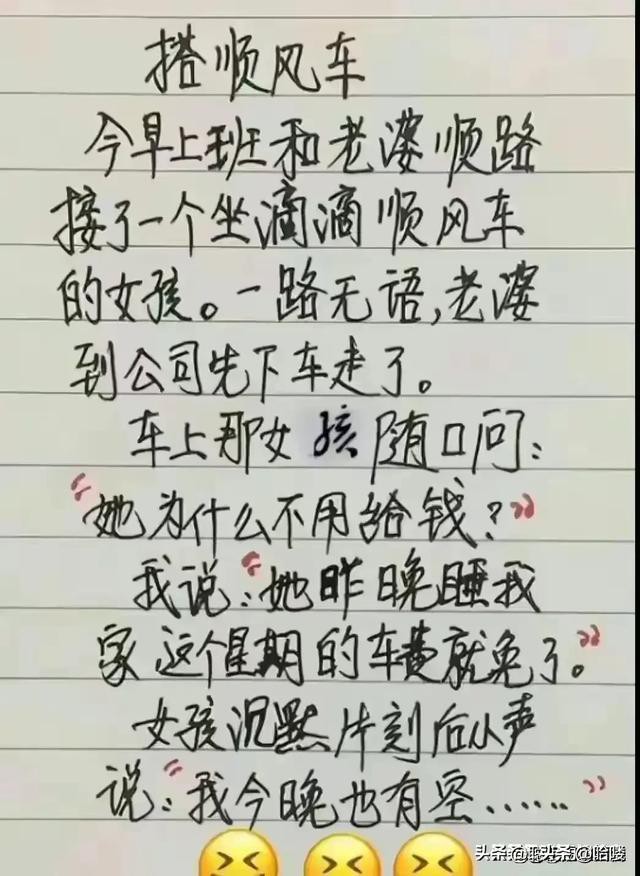 搭顺风车
今早上班和老婆顺路
接了一个坐滴滴顺风车
的女孩。一路无语,老婆
到公司先下车走了。
车上那女孩随口问:
“她为什么不用给钱?”
我说:“她昨晚睡我
家这个星期的车费就免了。”
女孩沉默片刻后小声
说:“我今晚也有空......”
头条